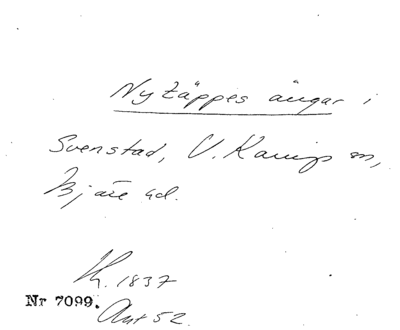 Nytäppes ängar i
Svenstad, V. Karup sn,
Bjäre hd.
1837
Nr 7099.
Akt 52